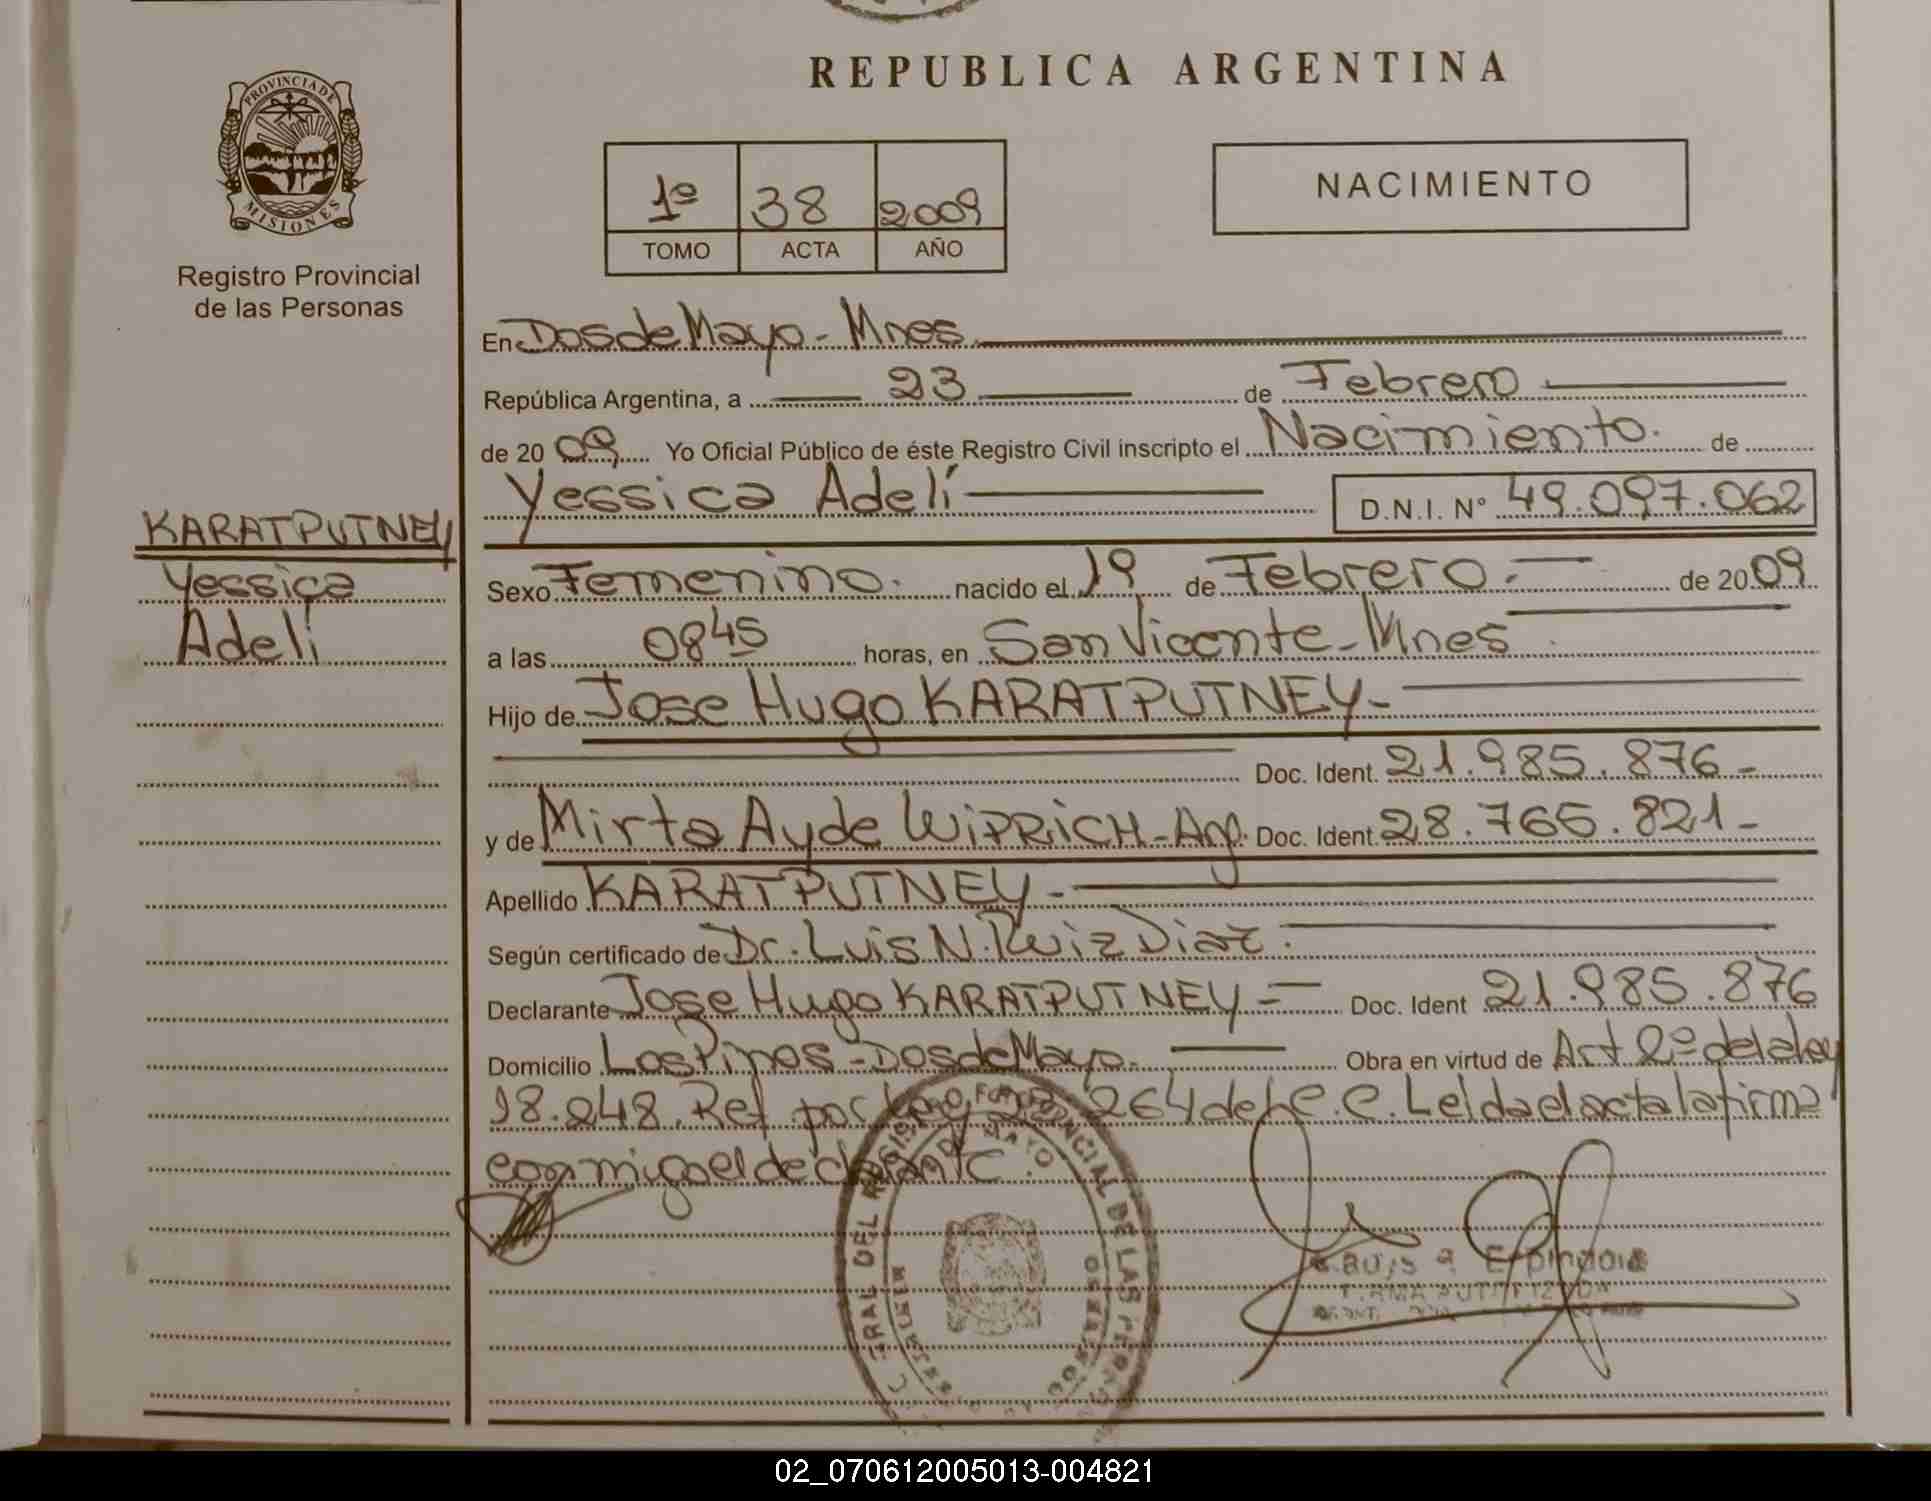 REPUBLICA ARGENTINA
PROVINCIA DE MISIONES
Registro Provincial
de las Personas
1º 38 2009
TOMO ACTA AÑO
NACIMIENTO
En Dos de Mayo - Mnes
República Argentina, a 23 de Febrero
de 2009 Yo Oficial Público de éste Registro Civil inscripto el Nacimiento. de
Yessica Adelí D.N.I. Nº 49.097.062
KARATPUTNEY
Yessica
Adelí
Sexo Femenino. nacido el 19 de Febrero. de 2009
a las 0845 horas, en San Vicente - Mnes
Hijo de Jose Hugo KARATPUTNEY-
Doc. Ident. 21.985.876-
y de Mirta Ayde WIPRICH - Arg. Doc. Ident. 28.765.821-
Apellido KARATPUTNEY-
Según certificado de Dr. Luis N. Ruiz Diaz.
Declarante Jose Hugo KARATPUTNEY= Doc. Ident 21.985.876
Domicilio Los Pinos - Dos de Mayo. Obra en virtud de Art 2º de la ley
18.248. Ref. por Ley 264 del C.C. Leida el acta la firma
conmigo el declarante.
DEL REGISTRO PROVINCIAL DE LAS
DE MAYO
Espindola
02_070612005013-004821